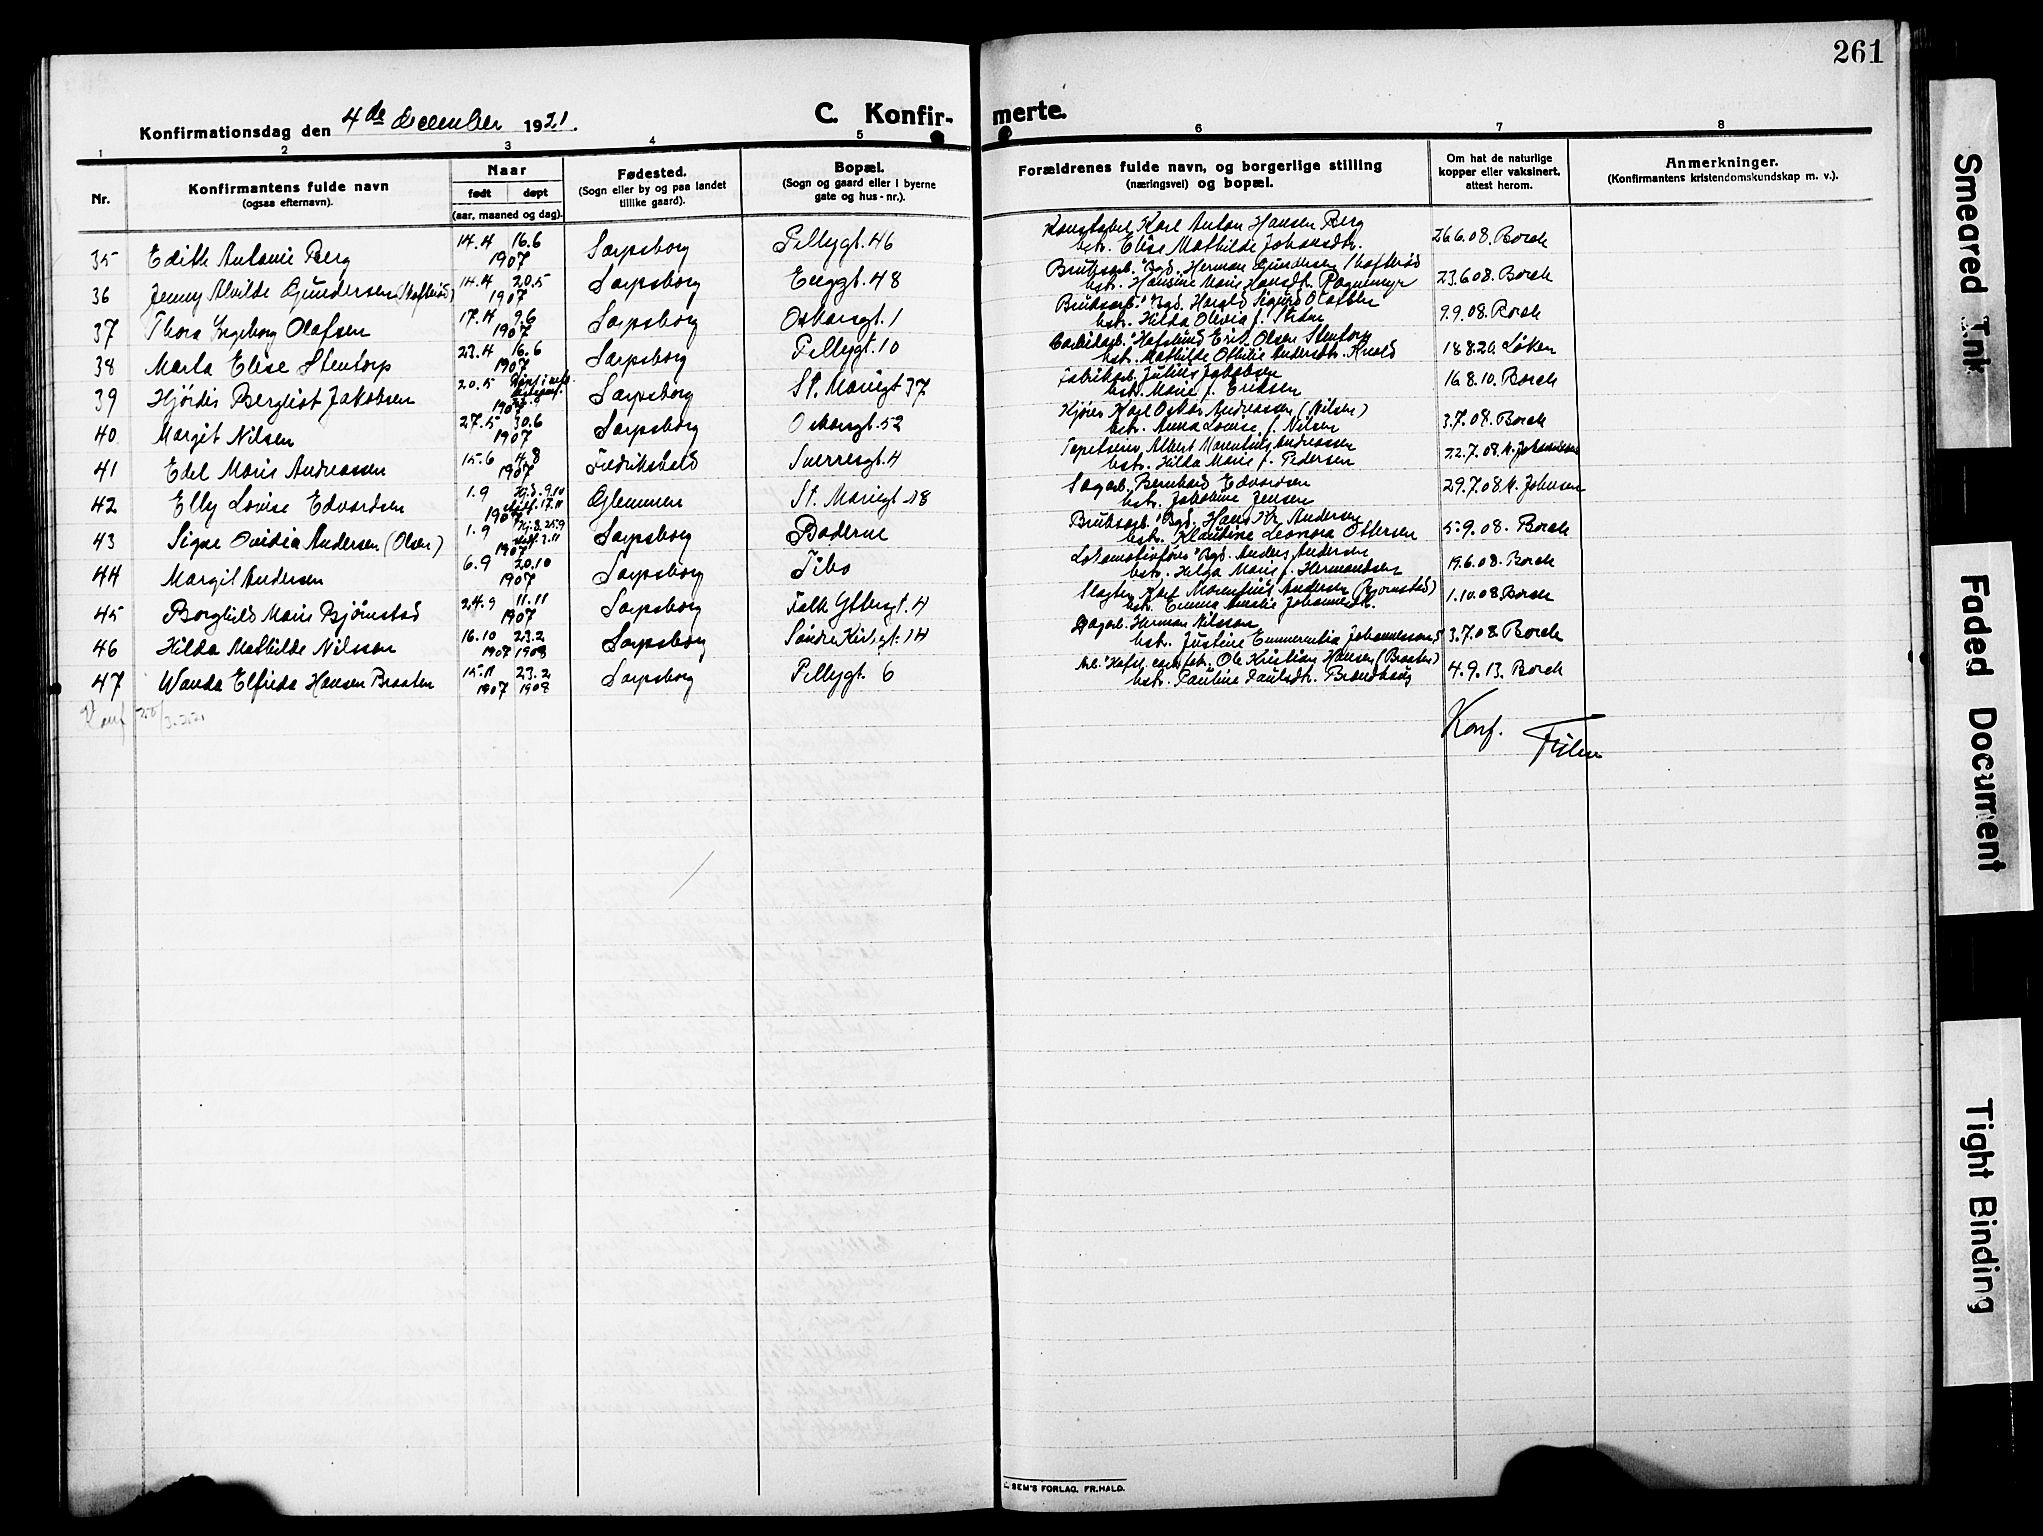 261
Konfirmationsdag den 4de december 1921.
C. Konfir- merte.
1 2 3 4 5 6 7 8
Nr.
Konfirmantens fulde navn
(ogsaa efternavn).
Naar
født døpt
(aar, maaned og dag).
Fødested.
(Sogn eller by og paa landet
tillike gaard).
Bopæl.
(Sogn og gaard eller i byerne
gate og hus-nr.).
Forældrenes fulde navn, og borgerlige stilling
(næringsvei) og bopæl.
Om hat de naturlige
kopper eller vaksinert,
attest herom.
Anmerkninger.
(Konfirmantens kristendomskundskap m. v.).
35 Edith Antonie Berg 14.4 16.6 1907 Sarpsborg Pellygt. 46 Konstabel Karl Anton Hansen Berg
hstr. Elise Mathilde Johansdtr. 26.6.08. Borch
36 Jenny Alvilde Gundersen (Skofterød) 14.4 20.5 1907 Sarpsborg Enggt. 48 Bruksarb. Bgd. Herman Gundersen Skofterød
hstr. Hansine Marie Hansdtr. 23.6.08. Borch
37 Thora Ingeborg Olafsen 17.4 9.6 1907 Sarpsborg Oskarsgt. 1 Bruksarb. Bgd. Harald Sigurd Olafsen
hstr. Hilda Olivia f. 9.9.08. Borch
38 Marta Elise Stentorp 23.4 16.6 1907 Sarpsborg Pellygt. 10 Carbidarb. Hafslund Erik Olsen Stentorp
hstr. Mathilde Othilie Andersdtr. 18.8.20. Løken
39 Hjørdis Bergliot Jakobsen 20.5 1907 Sarpsborg St. Mariegt 37 Fabrikarb. Julius Jakobsen
hstr. Marie f. Eriksen 16.8.10. Borch
40 Margit Nilsen 27.5 30.6 1907 Sarpsborg Oskarsgt. 52 Kjører Karl Oskar Andreassen (Nilsen)
hstr. Anna Lovise f. Nilsen 3.7.08. Borch
41 Edel Marie Andreassen 15.6 4.8 1907 Fredrikshald Sverresgt. 4 Tapetserer Albert Marentius Andreassen
hstr. Hilda Marie f. Pedersen 22.7.08.
42 Elly Lovise Edvardsen 1.9 1907 Glemmen St. Mariegt. 18 Sagarb. Bernhard Edvardsen
hstr. Jakobine Jensen 29.7.08 M. Johnsen
43 Signe Ovidia Andersen (Olsen) 1.9 1907 Sarpsborg Baderne Bruksarb. Bgd. Hans Kr. Andersen
hstr. Klaudine Leonora Ottersen 5.9.08. Borch
44 Margit Andersen 6.9 20.10 1907 Sarpsborg Tibo Lokomotivfører Bgd. Anders Andersen
hstr. Hilga Marie f. Hermandsen 19.6.08. Borch
45 Borghild Marie Bjørnstad 24.9 11.11 1907 Sarpsborg Falk Yttergt. 4 Slagter Karl Marentius Andersen (Bjørnstad)
hstr. Emma Amalie Johannesdtr. 1.10.08 Borch
46 Hilda Mathilde Nilsson 16.10 23.2 1907 1908 Sarpsborg Søndre Kirkegt. 14 Dagarb. Herman Nilsson
hstr. Justine Emmerentia Johannesson 3.7.08. Borch
47 Wanda Elfrida Hansen Braaten 15.11 23.2 1907 1908 Sarpsborg Pellygt. 6 Arb. Hafsl. carb.fabr. Ole Kristian Hansen (Braaten)
hstr. Pauline Paulsdtr. 4.9.13. Borch
Konf.
SEM'S FORLAG, FR.HALD.
Smeared Ink
Faded Document
Tight Binding